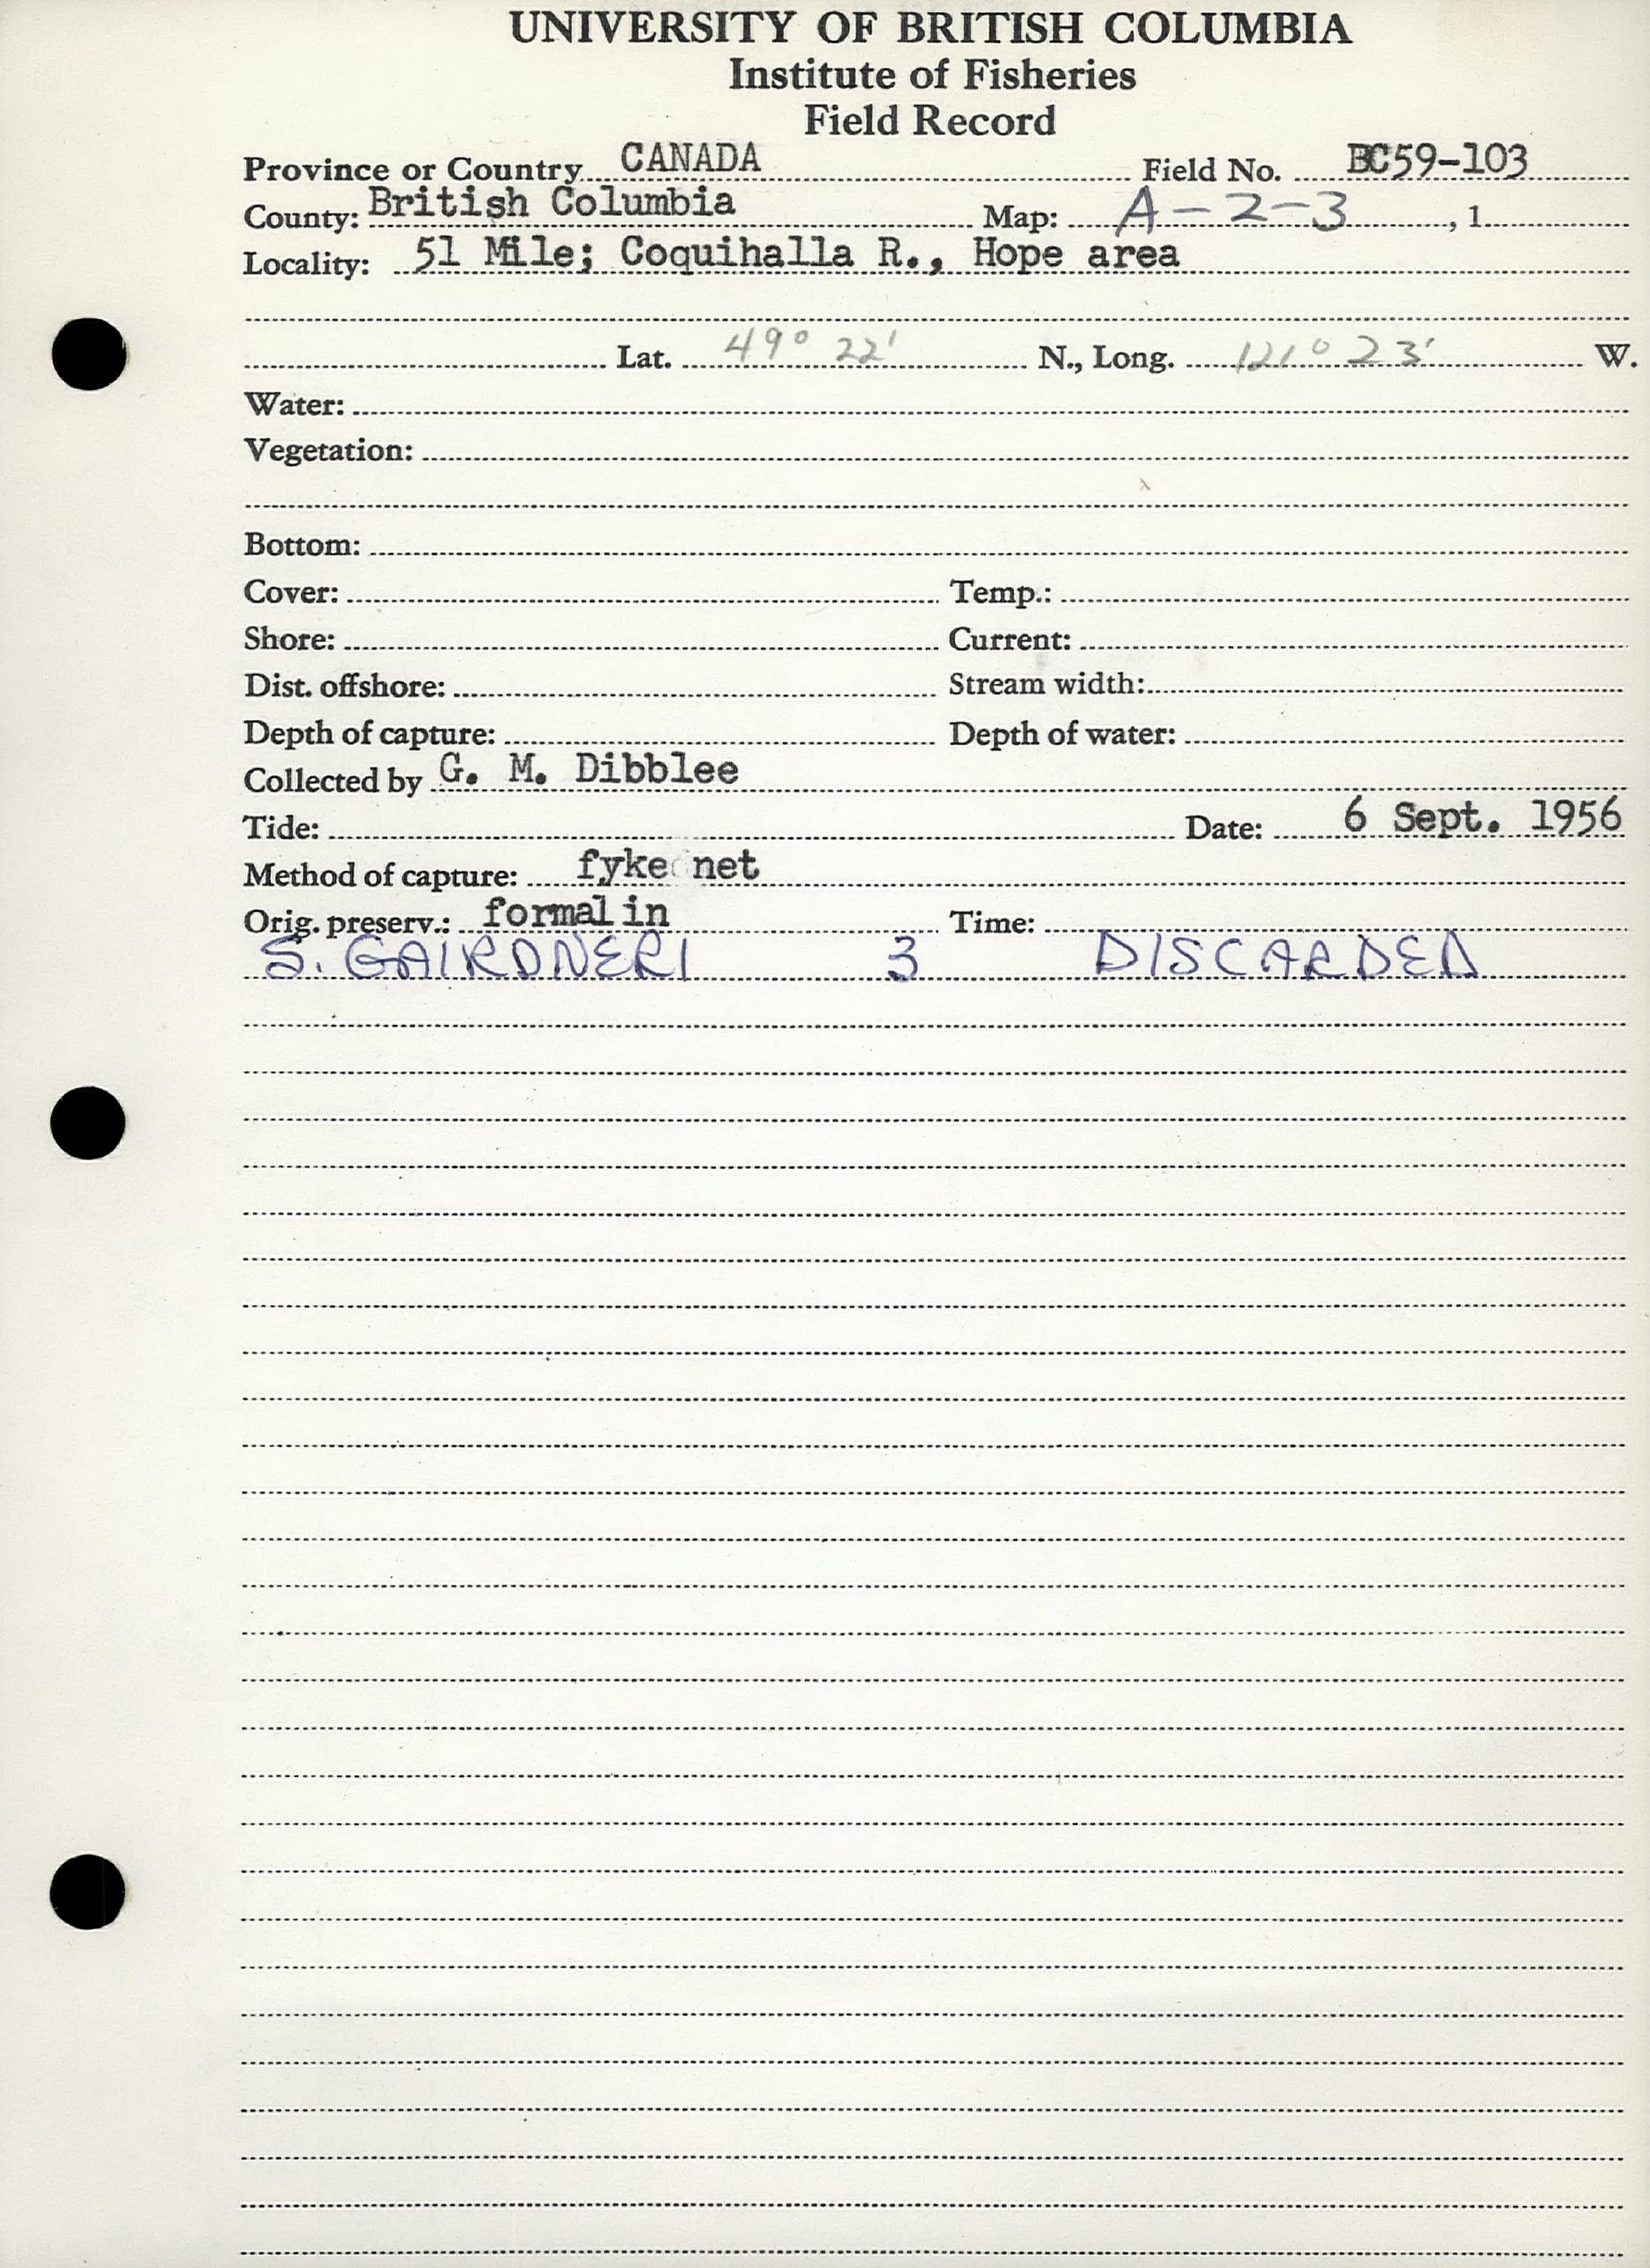 UNIVERSITY OF BRITISH COLUMBIA
Institute of Fisheries
Field Record
Province or Country CANADA Field No. BC59-103
County: British Columbia Map: A-2-3, 1
Locality: 51 Mile; Coquihalla R., Hope area
Lat. 49° 22' N., Long. 121° 23' W.
Water:
Vegetation:
Bottom:
Cover: Temp.:
Shore: Current:
Dist. offshore: Stream width:
Depth of capture: Depth of water:
Collected by G. M. Dibblee
Tide: Date: 6 Sept. 1956
Method of capture: fyke net
Orig. preserv.: formalin Time:
S. GAIRDNERI 3 DISCARDED